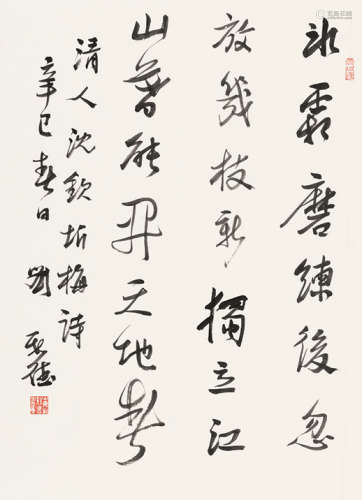 冰霜磨練後忽
放幾枝新獨立江
山暮能開天地春
清人沈欽圻梅詩
辛巳春日 劉 德